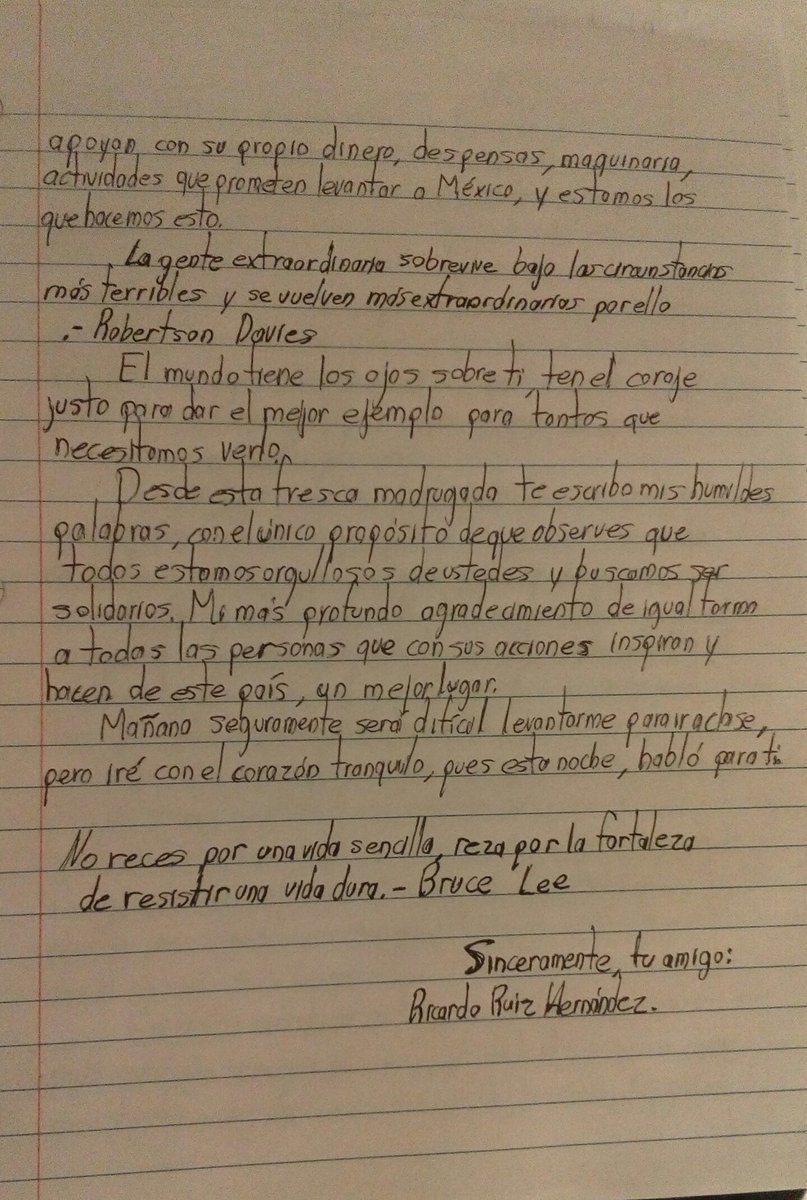 apoyan con su propio dinero, despensas, maquinaria,
actividades que prometen levantar a México, y estamos los
que hacemos esto.
La gente extraordinaria sobrevive bajo las circunstancias
más terribles y se vuelven más extraordinarias por ello
.- Robertson Davies
El mundo tiene los ojos sobre ti, ten el coraje
justo para dar el mejor ejemplo para tantos que
necesitamos verlo.
Desde esta fresca madrugada te escribo mis humildes
palabras, con el único propósito de que observes que
todos estamos orgullosos de ustedes y buscamos ser
solidarios. Mi más profundo agradecimiento de igual forma
a todas las personas que con sus acciones inspiran y
hacen de este país, un mejor lugar.
Mañana seguramente será difícil levantarme para ir a clase,
pero iré con el corazón tranquilo, pues esta noche, habló para ti.
No reces por una vida sencilla, reza por la fortaleza
de resistir una vida dura.- Bruce Lee
Sinceramente, tu amigo:
Ricardo Ruiz Hernández.